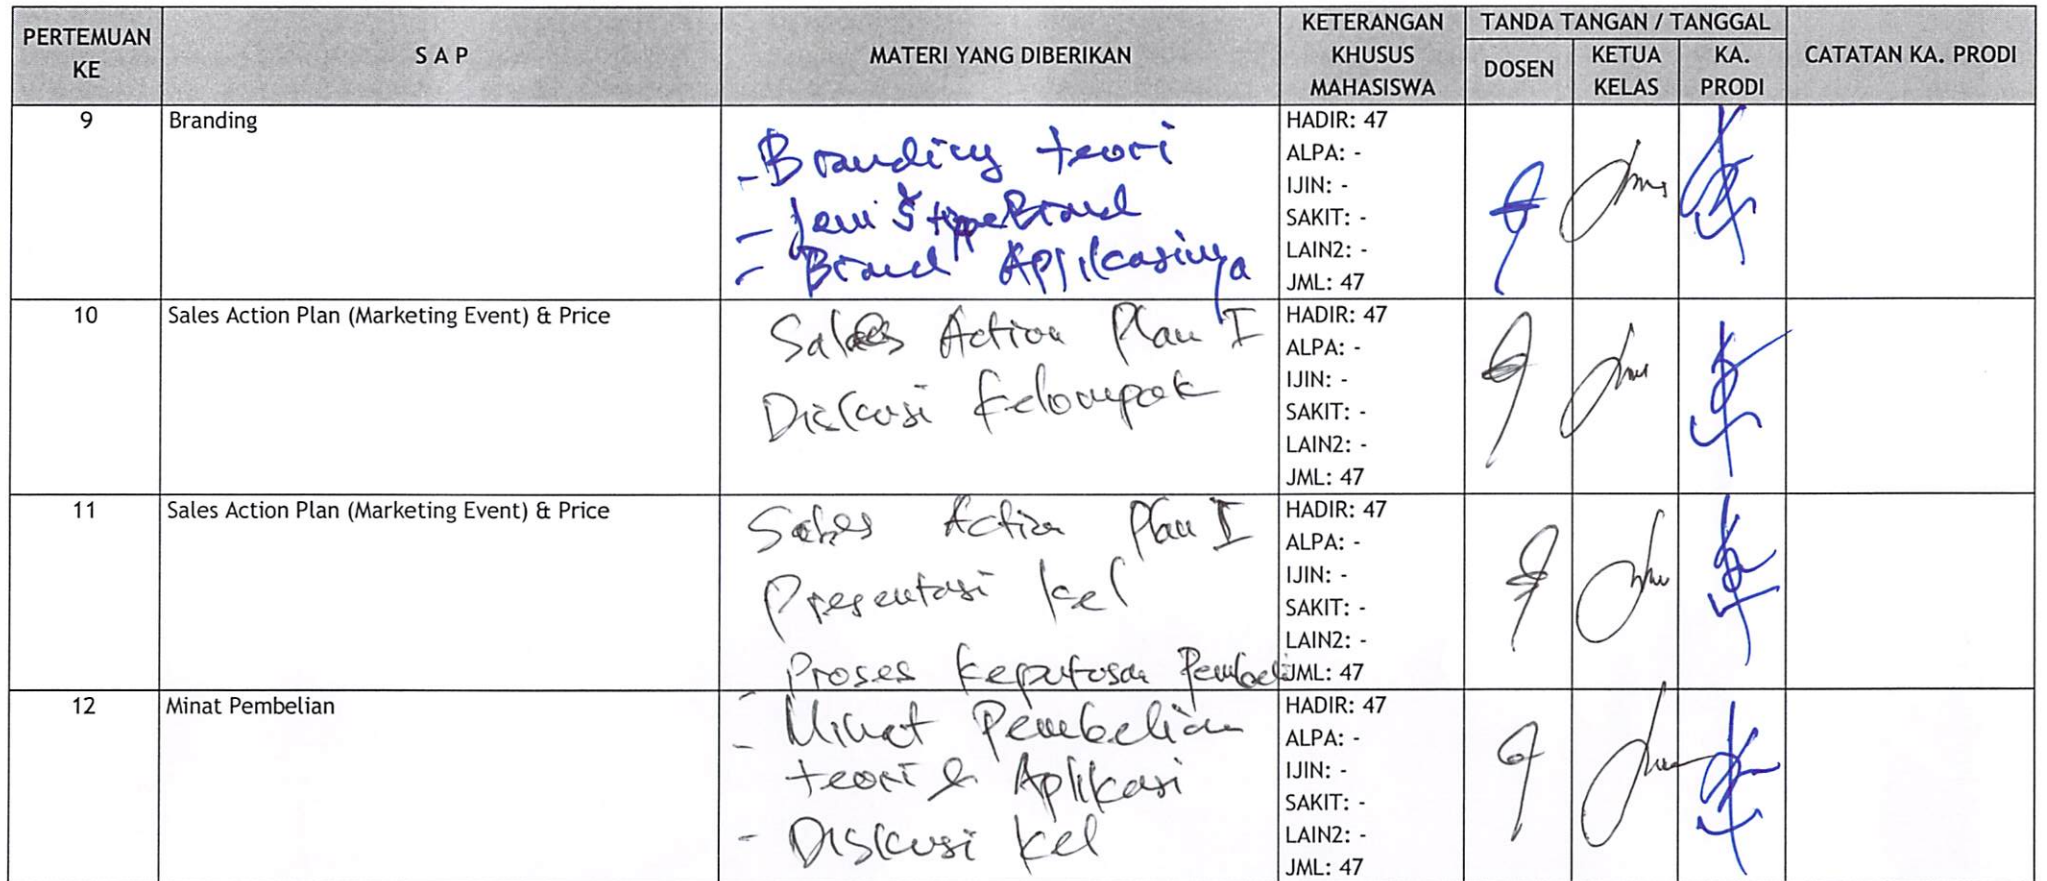 PERTEMUAN KE
S A P
MATERI YANG DIBERIKAN
KETERANGAN KHUSUS MAHASISWA
TANDA TANGAN / TANGGAL
DOSEN
KETUA KELAS
KA. PRODI
CATATAN KA. PRODI
9
Branding
- Branding teori
- Jenis tipe Brand
- Brand Aplikasinya
HADIR: 47
ALPA: -
IJIN: -
SAKIT: -
LAIN2: -
JML: 47
10
Sales Action Plan (Marketing Event) & Price
Sales Action Plan I
Diskusi Kelompok
HADIR: 47
ALPA: -
IJIN: -
SAKIT: -
LAIN2: -
JML: 47
11
Sales Action Plan (Marketing Event) & Price
Sales Action Plan I
Presentasi kel
HADIR: 47
ALPA: -
IJIN: -
SAKIT: -
LAIN2: -
JML: 47
12
Minat Pembelian
- Proses keputusan Pembeli
- Minat Pembelian
teori & Aplikasi
- Diskusi kel
HADIR: 47
ALPA: -
IJIN: -
SAKIT: -
LAIN2: -
JML: 47